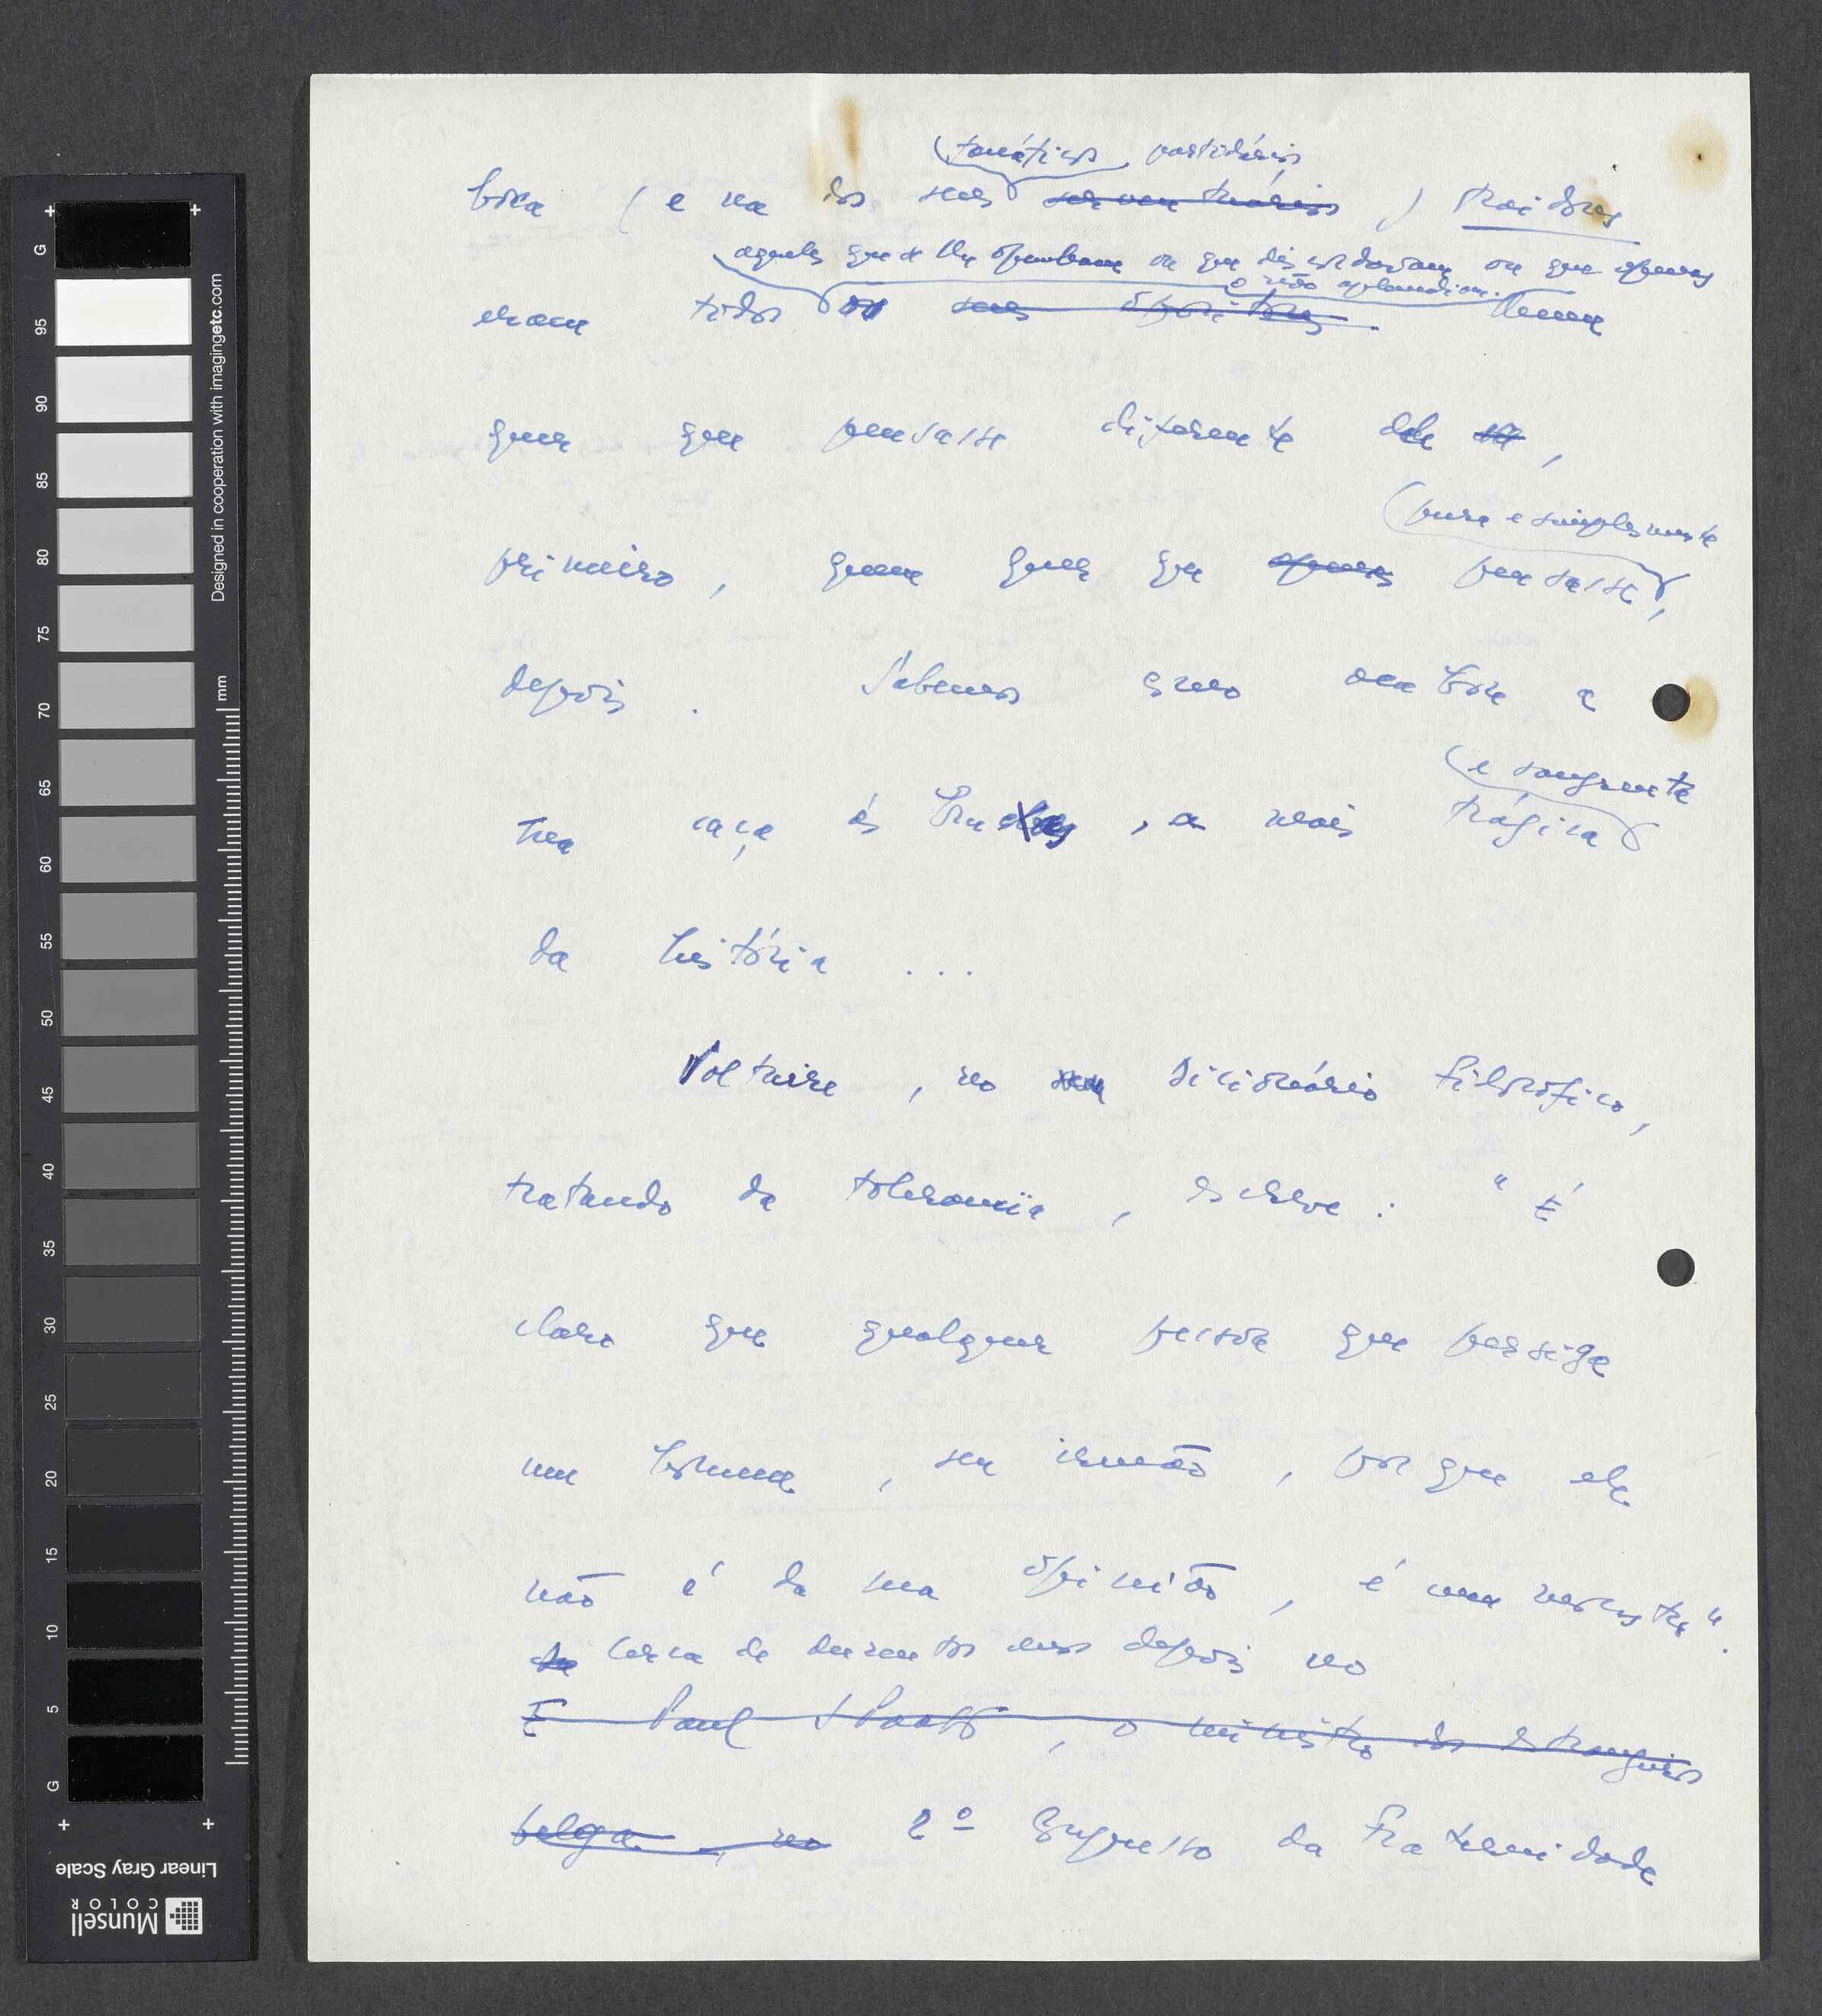 fanáticos partidários
boca (e na dos seus ser ven tuários) traidores
aqueles que se lhe opunham ou que discordavam ou que apenas
o não aplaudiam.
eram todos os seus opositores. Nem
quem que pensasse diferente dele,
pura e simplesmente
primeiro, quem quer que apenas pensasse,
depois. Sabemos como outra
e sangrenta
caça às bruxas, a mais trágica
da história ...
Voltaire, no seu Dicionário Filosófico,
tratando da tolerância, escreve: "É
claro que qualquer pessoa que persiga
um homem, seu irmão, porque ele
não é da sua opinião, é um monstro".
Cerca de duzentos anos depois no
E Paul Spaak, o ministro dos Estrangeiros
belga, no 2º Congresso da Fraternidade
G 95 90 85 80 75 70 65 60 55 50 45 40 35 30 25 20 15 10 5 G
Designed in cooperation with imagingetc.com
mm
Linear Gray Scale
Munsell
COLOR